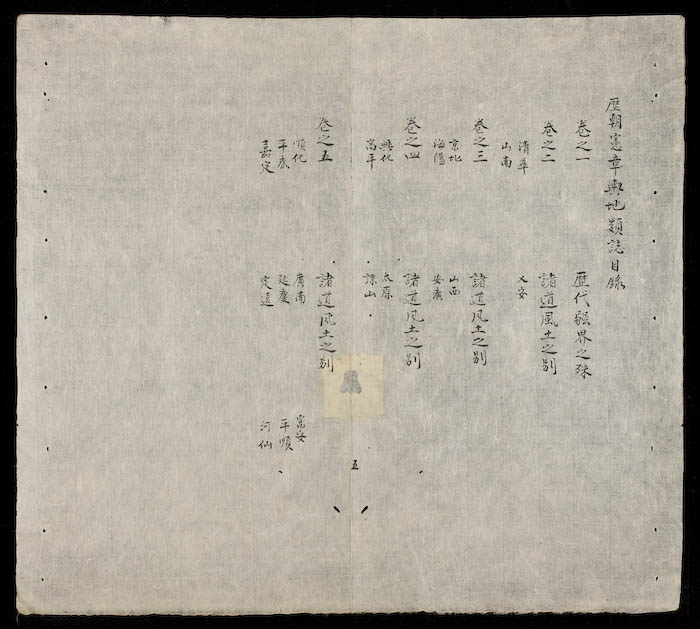 歷朝憲章輿地類誌目錄
卷之一 歷代疆界之殊
卷之二 諸道風土之别
清華 乂安
山南
卷之三 諸道风土之别
京北 山西
海陽 安廣
卷之四 諸道风土之别
興化 太原
高平 諒山
卷之五 諸道风土之别
順化 廣南 富安
平康 延慶 平順
嘉定 定遠 河仙
五